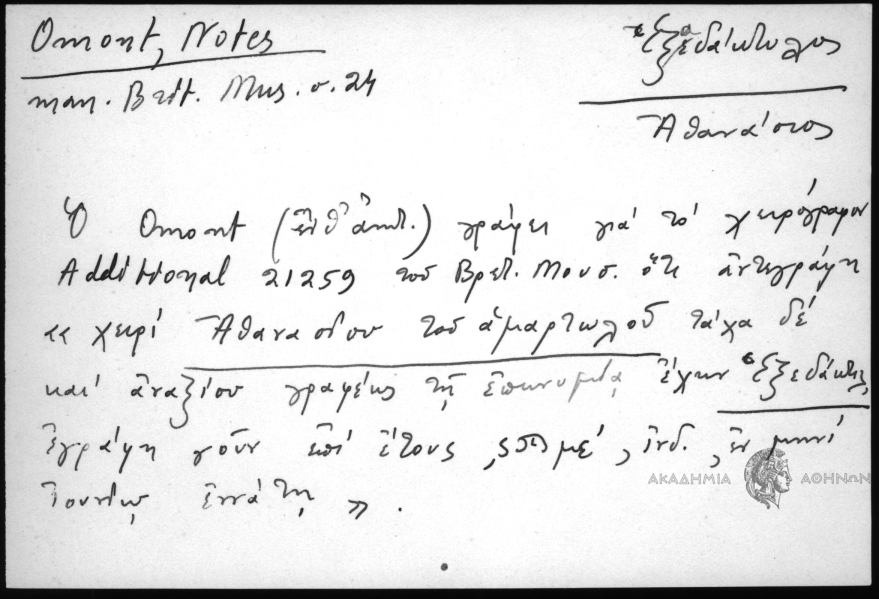 Omont, Notes
man. Brit. Mus. σ. 24
Ἑξεδάκτυλος
Ἀθανάσιος
Ὁ Omont (ἔνθ' ἀνωτ.) γράφει γιά τό χειρόγραφον
Additional 21259 τοῦ Βρετ. Μουσ. ὅτι ἀντεγράφη
«χειρί Ἀθανασίου τοῦ ἁμαρτωλοῦ τάχα δέ
καί ἀναξίου γραφέως τῇ ἐπωνυμίᾳ ἔχων Ἑξεδάκτυλ.
Ἐγράφη γοῦν ἐπί ἔτους ͵ϛ μέ, ἰνδ. , ἐν μηνί
Ἰουνίῳ ἐννάτῃ».
ΑΚΑΔΗΜΙΑ ΑΘΗΝΩΝ